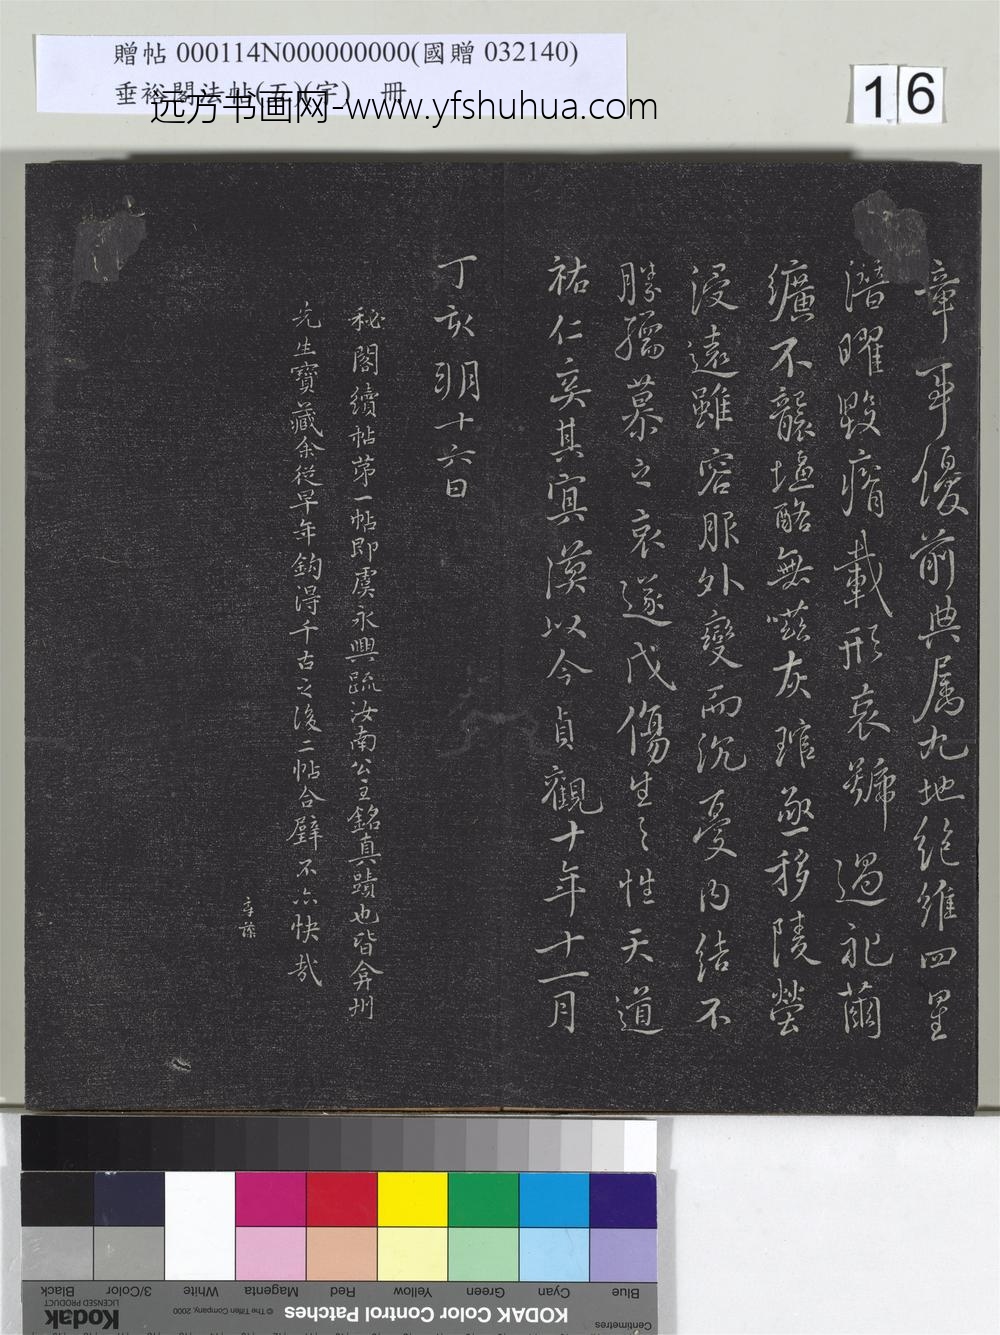 贈帖 000114N000000000(國贈 032140)
垂裕閣法帖(五)(字) 冊
远方书画网-www.yfshuhua.com
16
章耳優前典屬九地絕維四星
潛曜毀瘠載形哀號過祀繭
纊不襲塩酪無嗞灰琯亟移陵塋
浸遠雖容服外變而沉憂內結不
勝孺慕之哀遂戊傷生之性天道
祐仁奚其冥漠以今貞觀十年十一月
丁亥朔十六日
秘閣續帖第一帖即虞永興䟽汝南公主銘真蹟也皆弇州
先生寶藏余從早年鈎得千古之後二帖合璧不亦快哉
Black
3/Color
White
Magenta
Red
Yellow
Green
Cyan
Blue
Kodak
LICENSED PRODUCT
© The Tiffen Company, 2000
KODAK Color Control Patches
Centimetres